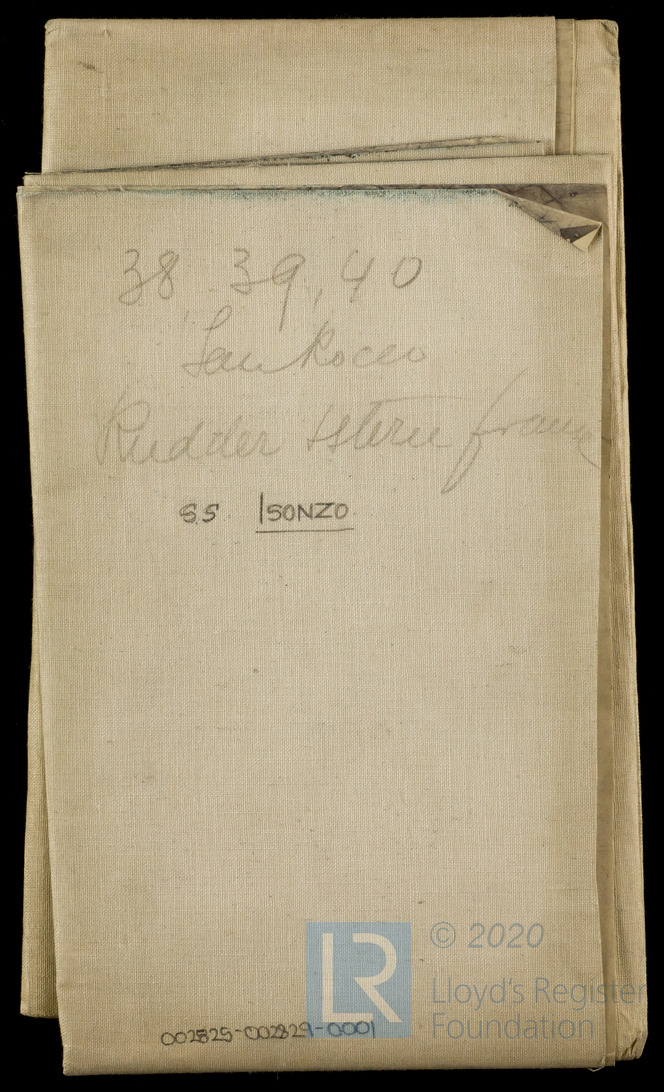 38, 39, 40
San Rocco
Rudder & Stern frame
SS ISONZO
002825-002829-0001
LR
© 2020
Lloyd's Register
Foundation